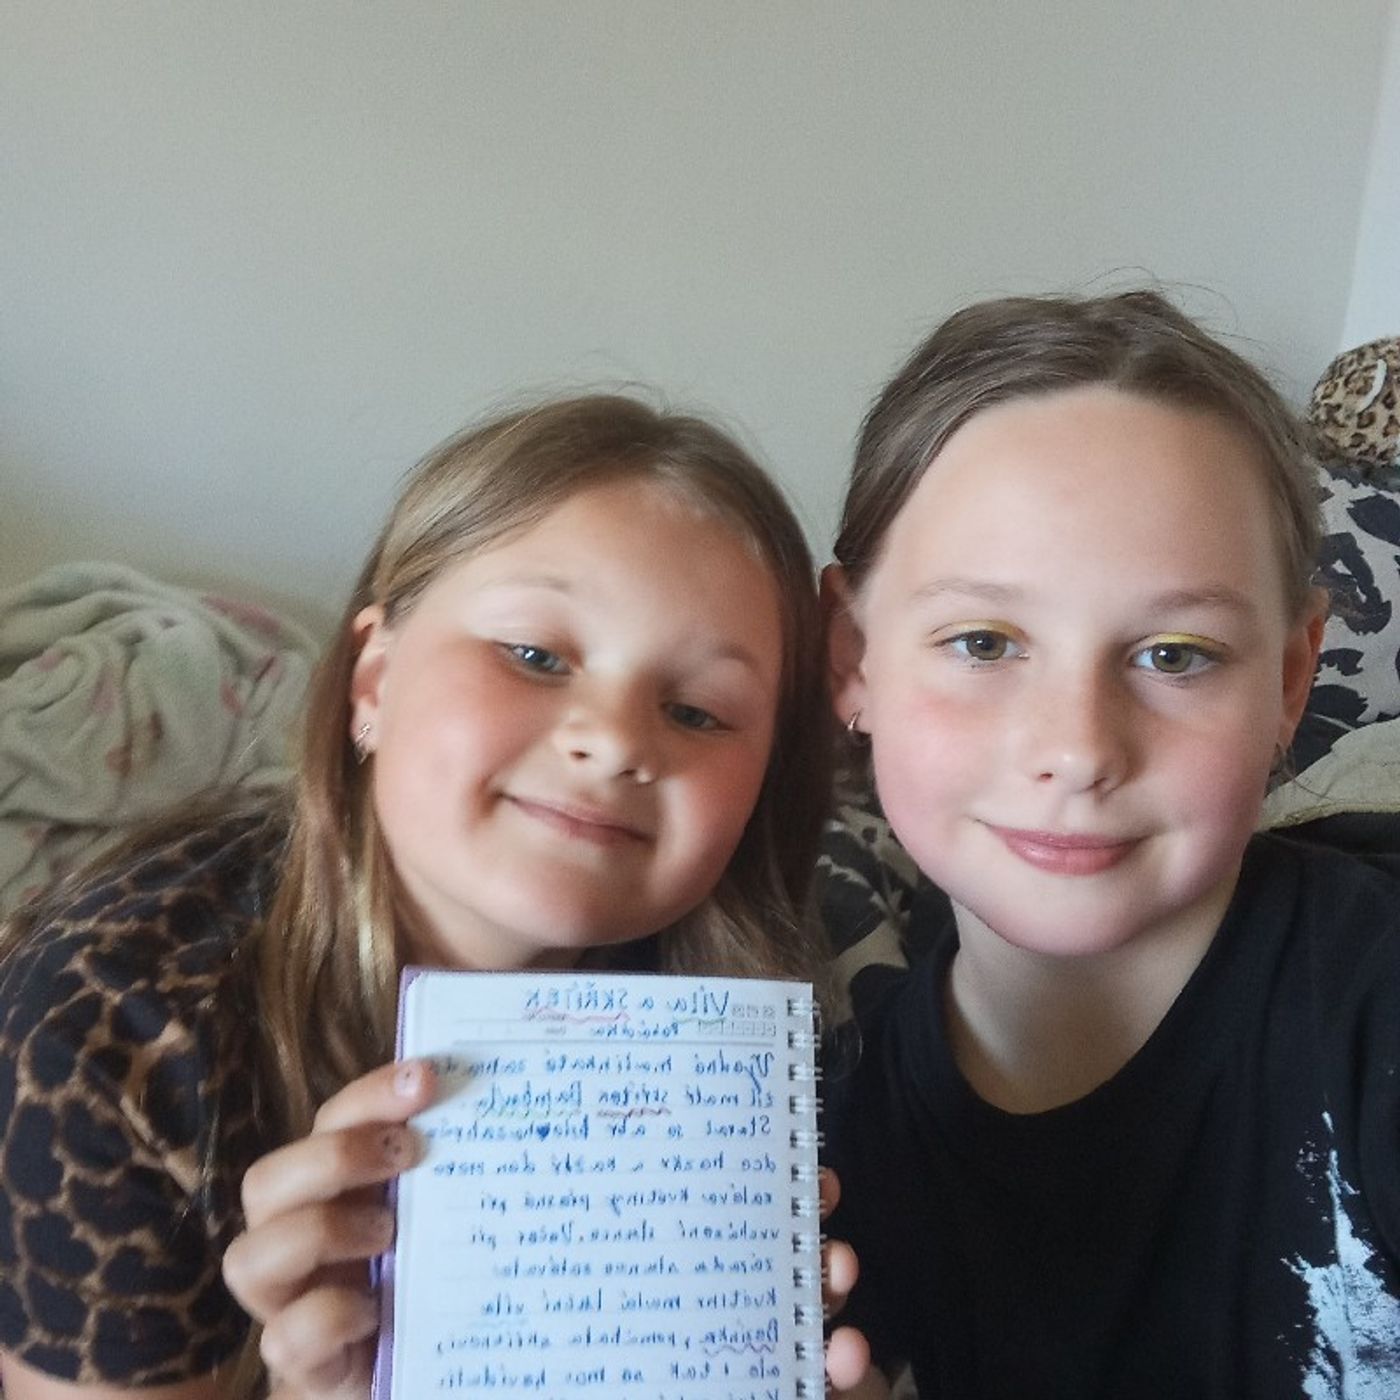 Víla a SKŘÍTEK
Pohádka
V jedné malinkaté zahrádce
žil malé skřítek Bambula.
Staral se aby byla
hezky a každý den
zaléval květiny přesně při
vycházení slunce. Večer při
západu slunce zalévala
květiny malá luční víla
pomáhala skřítkovi,
ale i tak se moc